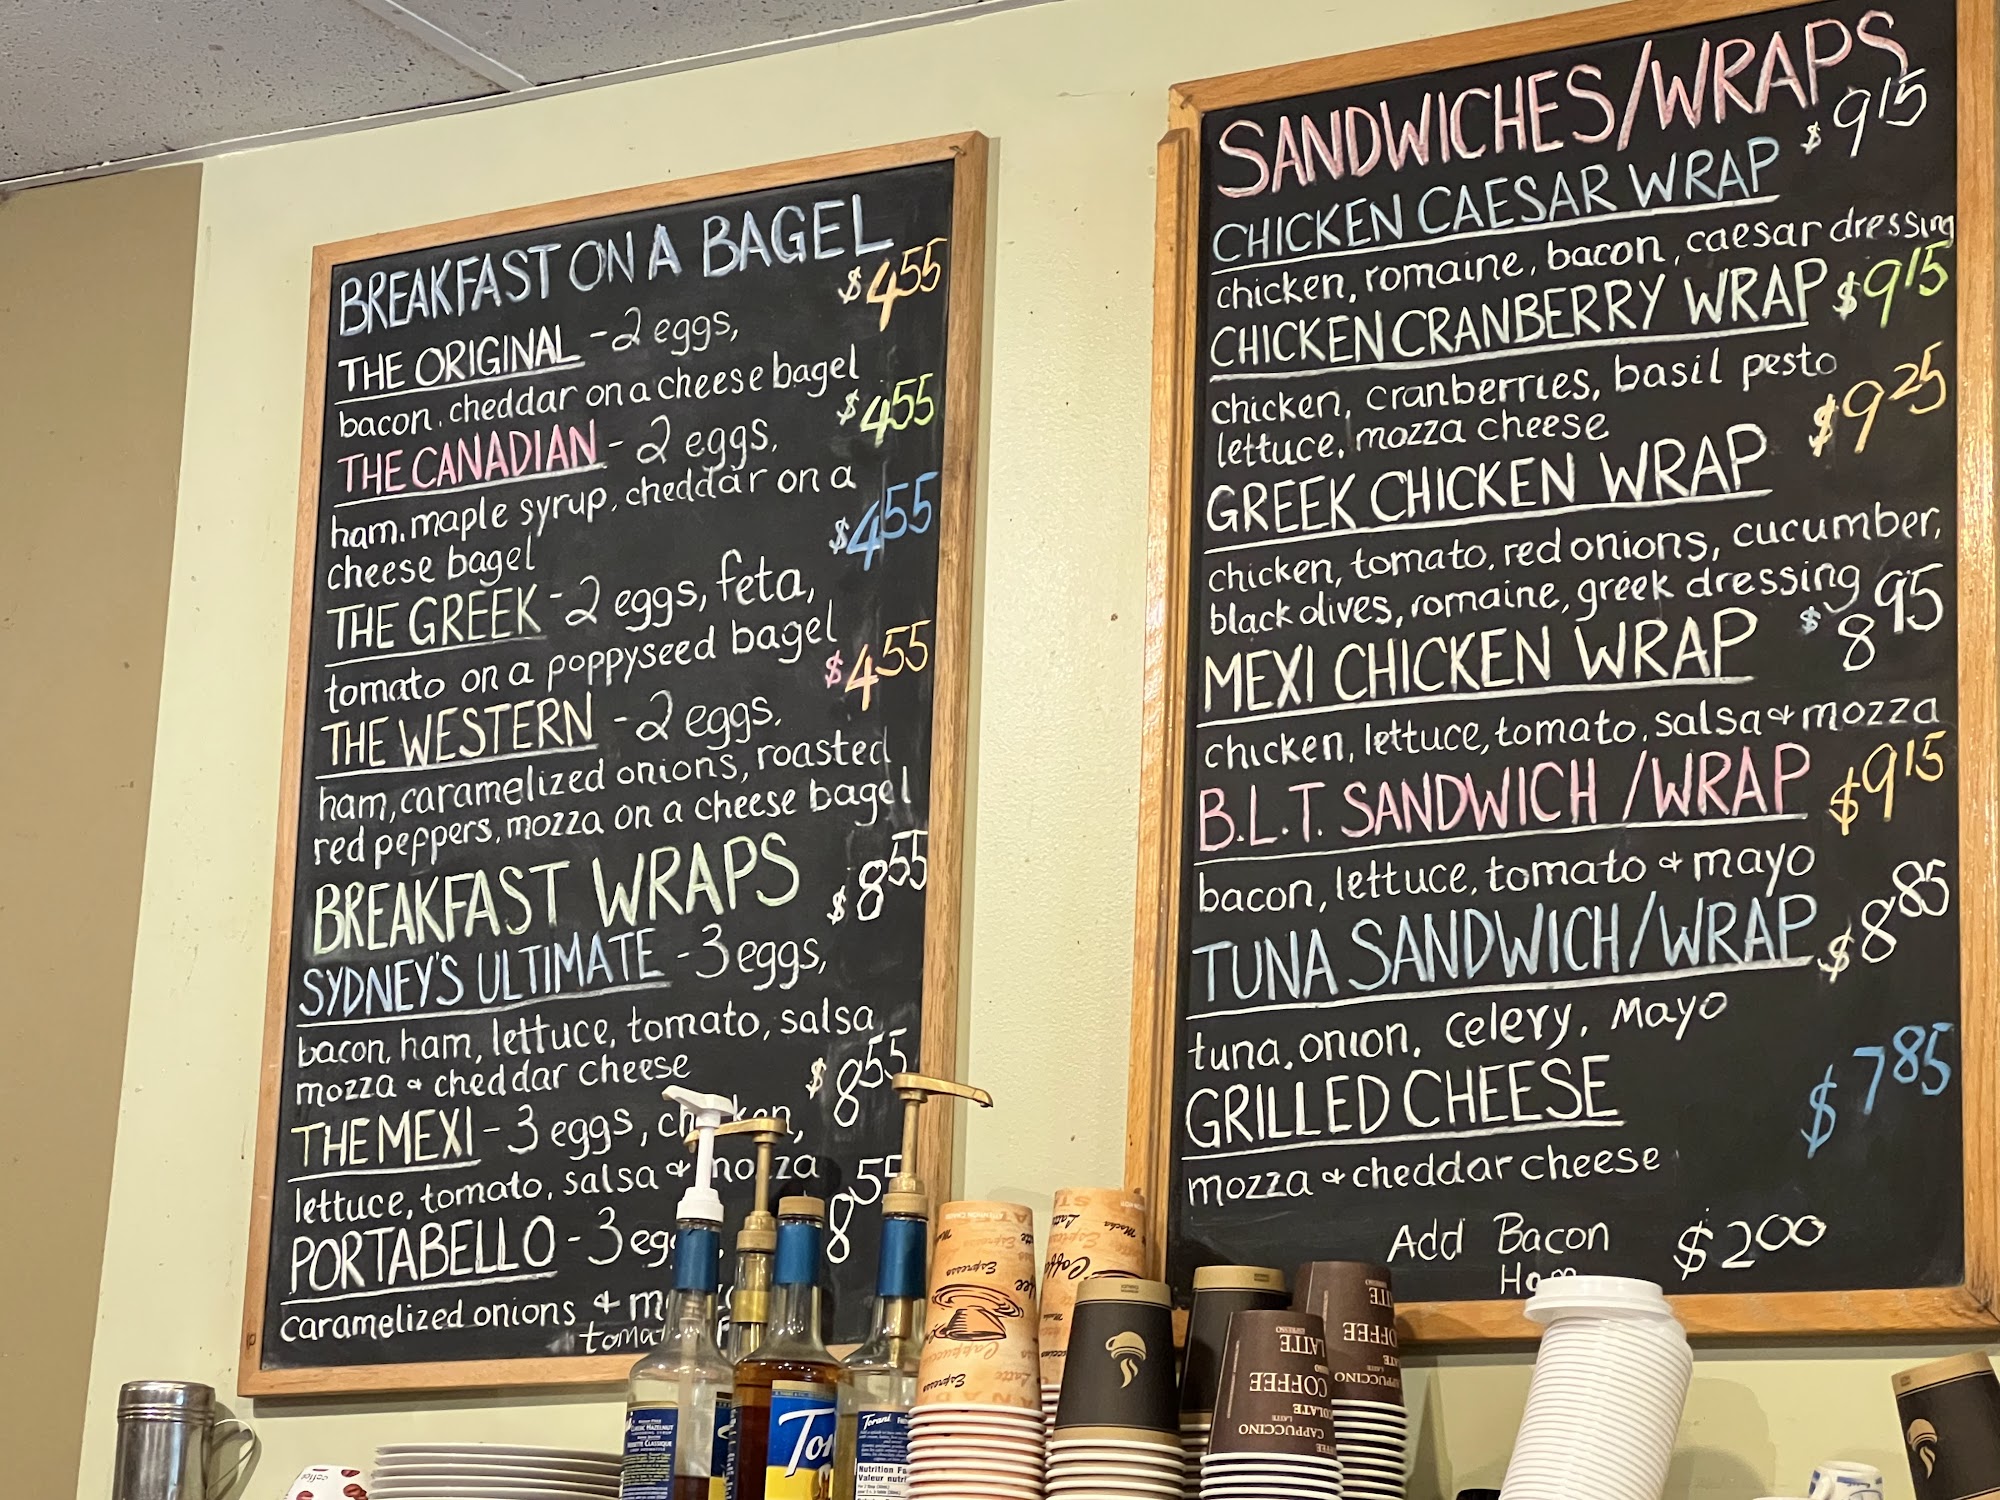 BREAKFAST ON A BAGEL
THE ORIGINAL - 2 eggs, $4.55
bacon, cheddar on a cheese bagel
THE CANADIAN - 2 eggs, $4.55
ham, maple syrup, cheddar on a
cheese bagel $4.55
THE GREEK - 2 eggs, feta,
tomato on a poppyseed bagel
THE WESTERN - 2 eggs, $4.55
ham, caramelized onions, roasted
red peppers, mozza on a cheese bagel
BREAKFAST WRAPS
SYDNEY'S ULTIMATE - 3 eggs, $8.55
bacon, ham, lettuce, tomato, salsa
mozza & cheddar cheese
THE MEXI - 3 eggs, chicken, $8.55
lettuce, tomato, salsa & mozza
PORTABELLO - 3 8.55
caramelized onions &
SANDWICHES/WRAPS
CHICKEN CAESAR WRAP $9.15
chicken, romaine, bacon, caesar dressing
CHICKEN CRANBERRY WRAP $9.15
chicken, cranberries, basil pesto
lettuce, mozza cheese
GREEK CHICKEN WRAP $9.25
chicken, tomato, red onions, cucumber,
black olives, romaine, greek dressing
MEXI CHICKEN WRAP $8.95
chicken, lettuce, tomato, salsa & mozza
B.L.T. SANDWICH / WRAP $9.15
bacon, lettuce, tomato & mayo
TUNA SANDWICH/WRAP $8.85
tuna, onion, celery, mayo
GRILLED CHEESE $7.85
mozza & cheddar cheese
Add Bacon $2.00
Ham
Espresso
Cappuccino
Latte
Espresso
Coffee
Mocha
Latte
LATTE
COFFEE
CAPPUCCINO
COFFEE
LATTE
CLASSIC HAZELNUT
NOISETTE CLASSIQUE
Torani
Nutrition